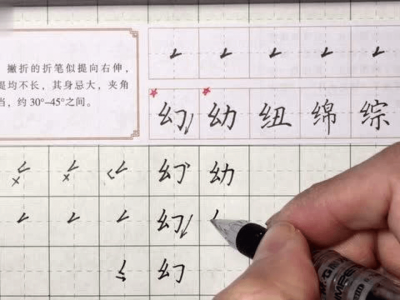 撇折的折笔似提向右伸，
提均不长，其身忌大，夹角
当，约30°–45°之间。
幻 幼 纽 绵 综
幻 幼
幻
幻